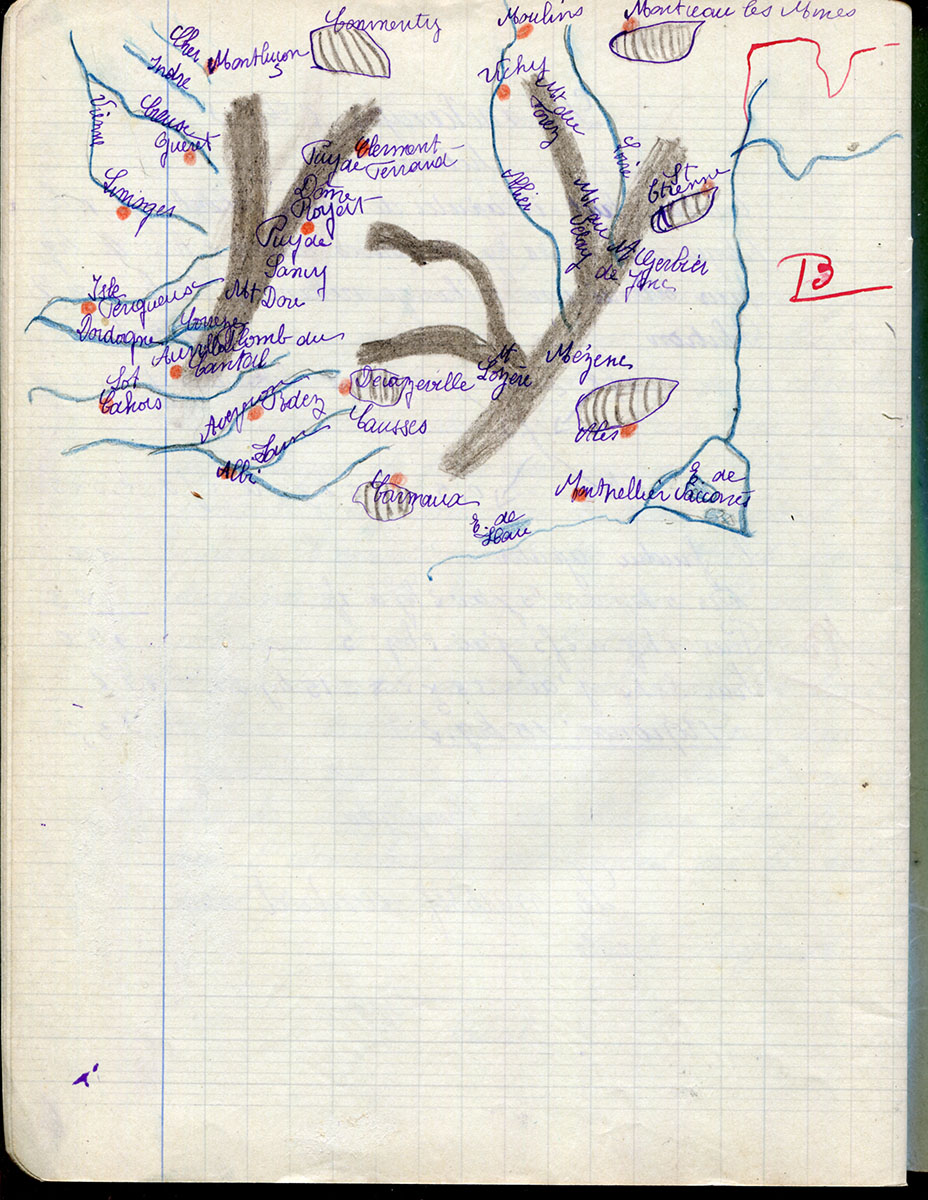 Commentry
Moulins
Montceau les Mines
Cher
Montluçon
Indre
Vichy
Mt du
Forez
Vienne
Creuse
Guéret
Puy
de
Dôme
Clermont
Ferrand
Loire
St
Etienne
Limoges
Royat
Allier
Mt du
Velay
Puy de
Sancy
Mt
Dore
Mt
Gerbier
de
Jonc
B
Isle
Périgueux
Dordogne
Corrèze
Aurillac
Plomb du
Cantal
Mt
Lozère
Mézenc
Lot
Cahors
Decazeville
Aveyron
Rodez
Causses
Alès
Tarn
Albi
Carmaux
Montpellier
E. de
Vaccarès
E. de
Thau